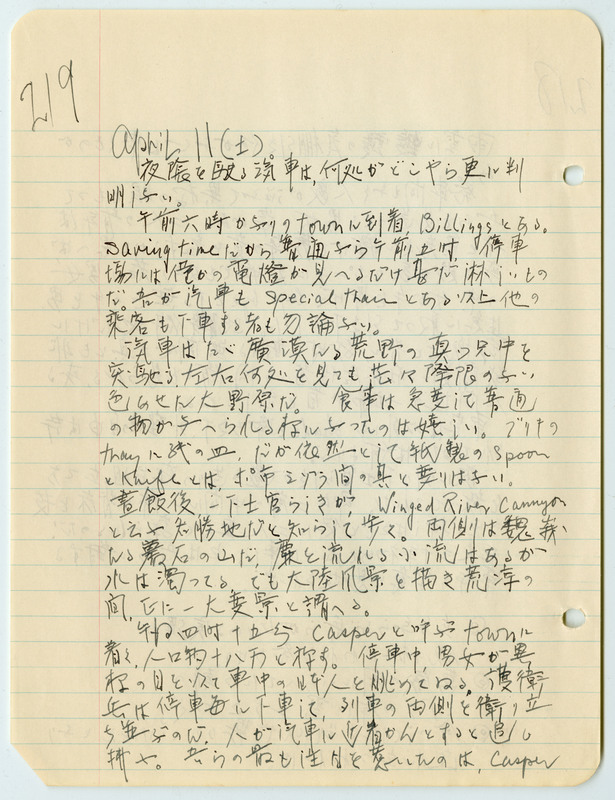 219
April 11 (土)。
夜陰を駛る汽車は、何処がどこやら更に判
明しない。
午前六時かなりのtownに到着、Billingsとある。
Saving timeだから普通なら午前五時、停車
場には僅かの電燈が見へるだけ甚だ淋しいもの
だ。吾が汽車もSpecial trainとある以上他の
乗客も下車する者も勿論ない。
汽車はたゞ廣漠たる荒野の真っ只中を
突馳る、左右何処を見ても茫々際限のない
色あせた大野原だ。食事は急変して普通
の物が与へられる様になったのは嬉しい。ブリキの
trayに紙の皿、だが依然として紙製のspoon
とKnifeとは、
晝飯後一下士官らしきが、Winged River Cannyon
と云ふ名勝地だと知らして歩く。両側は魏巍
たる巖石の山だ、 流れる小流はあるが
水は濁ってる。でも大陸風景を描き荒淳の
間、正に一大美景と謂へる。
午后四時十五分Casperと呼ぶtownに
着く、人口約十八万と称す。停車中、男女が異
様の目を以て車中の日本人を眺めてゐる。護衛
兵は停車毎に下車して、列車の両側を衛り立
ち並ぶので、人が汽車に近着かんとすると追し
拂ふ。吾らの最も注目を惹いたのは、Casper